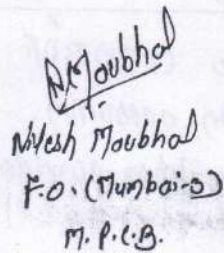 N. Moubhal
Nilesh Moubhal
F.O. (Mumbai-3)
M.P.C.B.